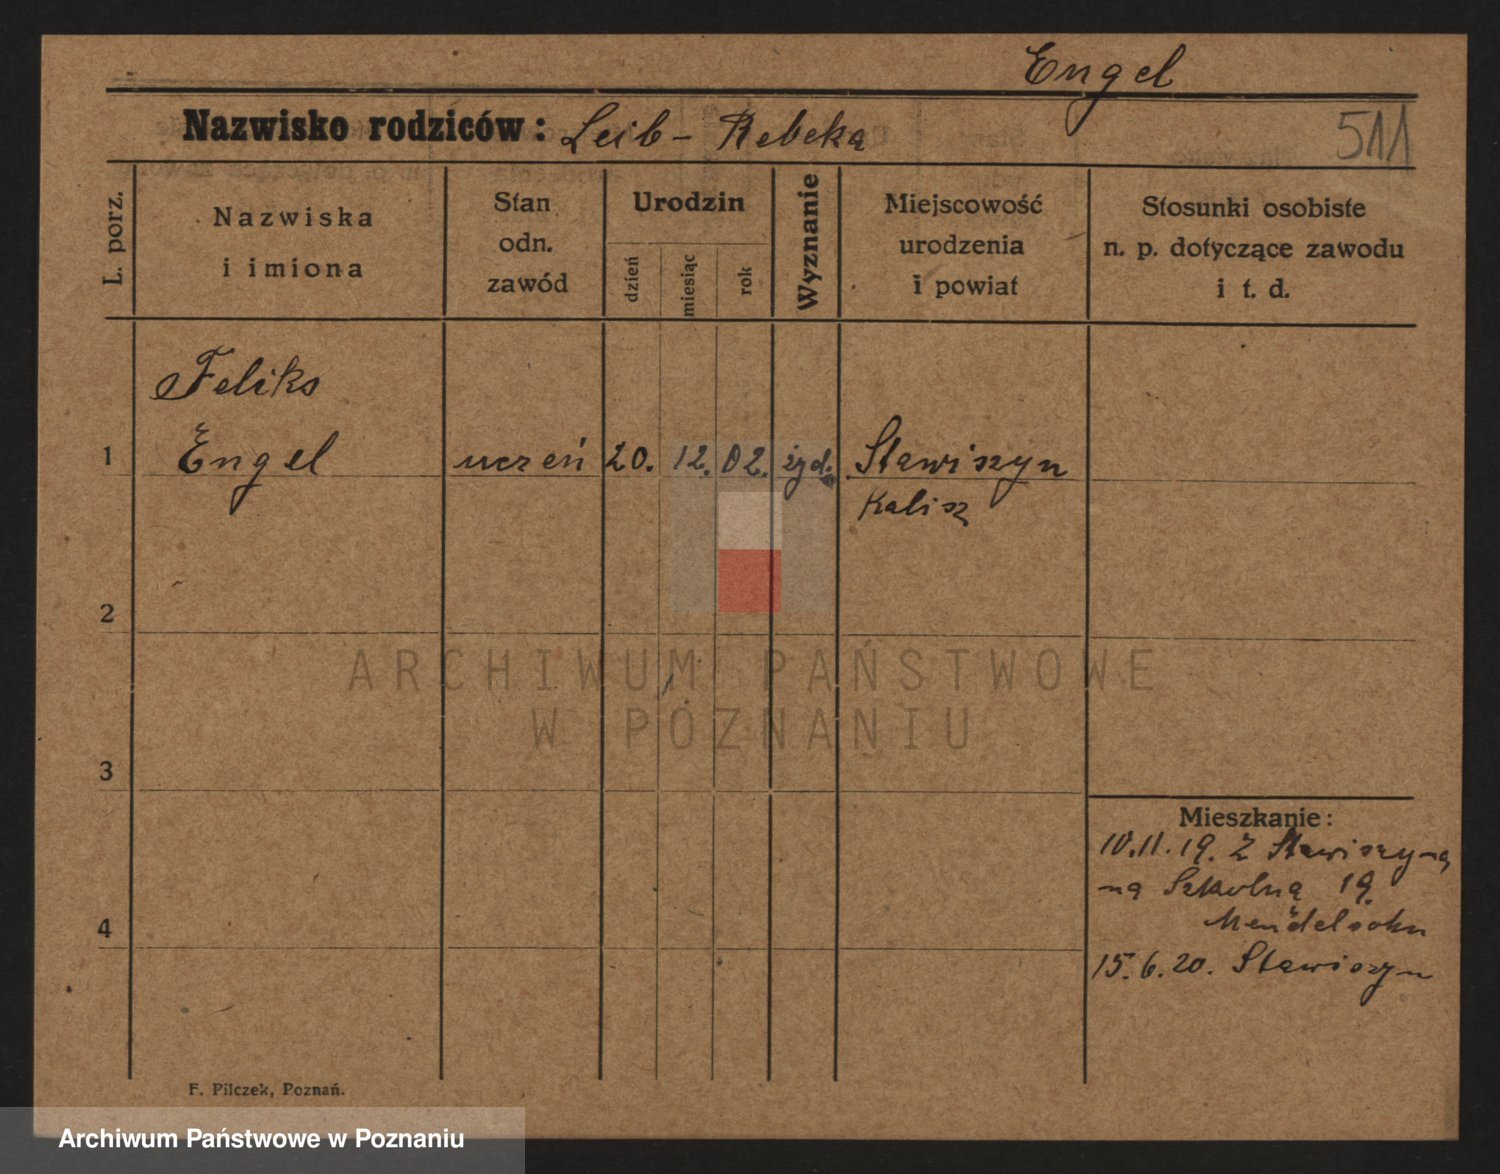 Engel
Nazwisko rodziców: Leib - Rebeka
511
L. porz.
Nazwiska
i imiona
Stan
odn.
zawód
Urodzin
dzień
miesiąc
rok
Wyznanie
Miejscowość
urodzenia
i powiat
Stosunki osobiste
n. p. dotyczące zawodu
i t. d.
Feliks
1 Engel uczeń 20. 12. 02. żyd. Stawiszyn
Kalisz
2
ARCHIWUM PAŃSTWOWE
W POZNANIU
3
Mieszkanie:
10.11.19. Z Stawiszyna
na Szkolną 19.
Mendelsohn
4
15.6.20. Stawiszyn
F. Pilczek, Poznań.
Archiwum Państwowe w Poznaniu